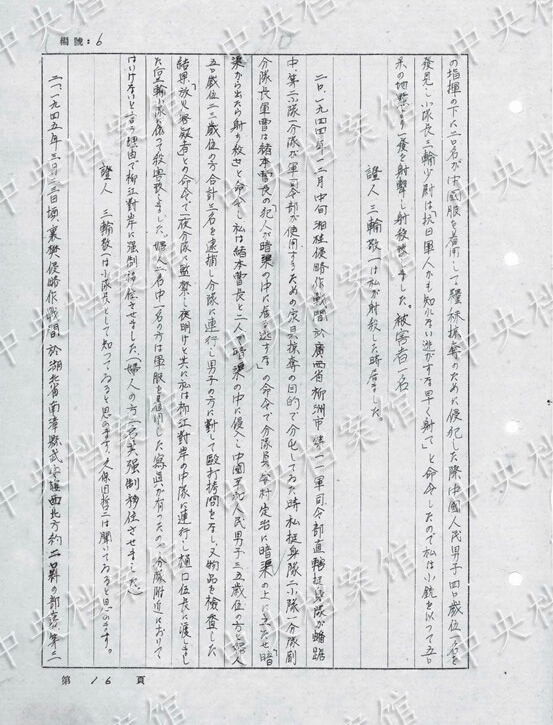 編號:6
の指揮の下に二〇名が中國服を着用して糧秣掠奪のために侵犯した際中國人民男子四〇歳位一名を
發見し小隊長三輪少尉は「抗日軍人かも知れない逃がすな早く射て」と命令したので私は小銃を以つて五〇
米の地點より一發を射撃し射殺致しました。被害者一名
證人 三輪敬一は私が射殺した時居ました。
二〇、一九四四年一二月中旬湘桂侵略作戰間於廣西省柳洲市第一一軍司令部直轄挺身隊が蟠踞
中第二小隊分隊が軍司令部が使用するための家具掠奪の目的で分屯してゐた時私挺身隊二小隊一分隊副
分隊長軍曹は緒本曹長の「犯人が暗渠の中に居る逃すな」の命令で分隊員 村定治に暗渠の上に立たせ「暗
渠から出たら射ち殺せ」と命令し私は緒本曹長と二人で暗渠の中に侵入し中國平和人民男子三五歳位の方と婦人
五〇歳位二三歳位の方合計三名を逮捕し分隊に連行し男子の方に對して毆打拷問をなし、又物品を檢査した
結果「放火容疑者」との命令で一夜分隊に監禁し夜明けと共に私は柳江對岸の中隊に連行し樋口伍長に渡しまし
た 三輪小隊 依つて殺害致しました。婦人二名中一名の方は軍服を着用した寫眞が有つたので分隊附近において
はいけないと言う理由で柳江對岸に強制移住させました(婦人の方二名共強制移住させました)
證人 三輪敬一は小隊長として知つてゐると思ひます、久保田哲二は聞いてゐると思ひます。
二一、一九四五年三月二三日頃、襄樊侵略作戰間於湖北省南漳縣武安鎮西北方約二〇粁の部落第二
第16頁
中央档案馆